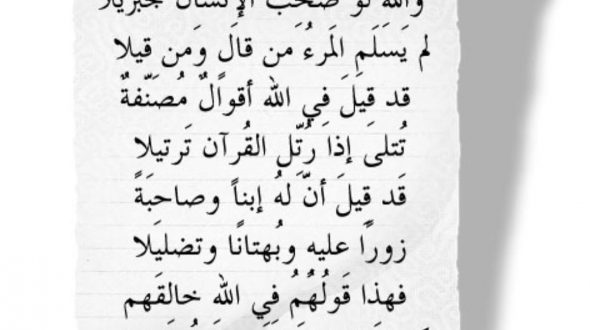 والله لو صَحَبَ الإنسانُ جبريلا
لم يَسَلَم المَرءُ من قالَ وَمن قيلا
قد قيَلَ في الله أقوالٌ مُصَنّفةٌ
تُتلىَ إذاَ رُتّل القُرآن تَرتيلا
قَد قِيلَ أنّ لهُ إبناً وصاحبَةً
زوراً عليه وبُهتانًا وتضليَلا
فهذا قَولُهُمُ فِي اللهِ خالِقَهم